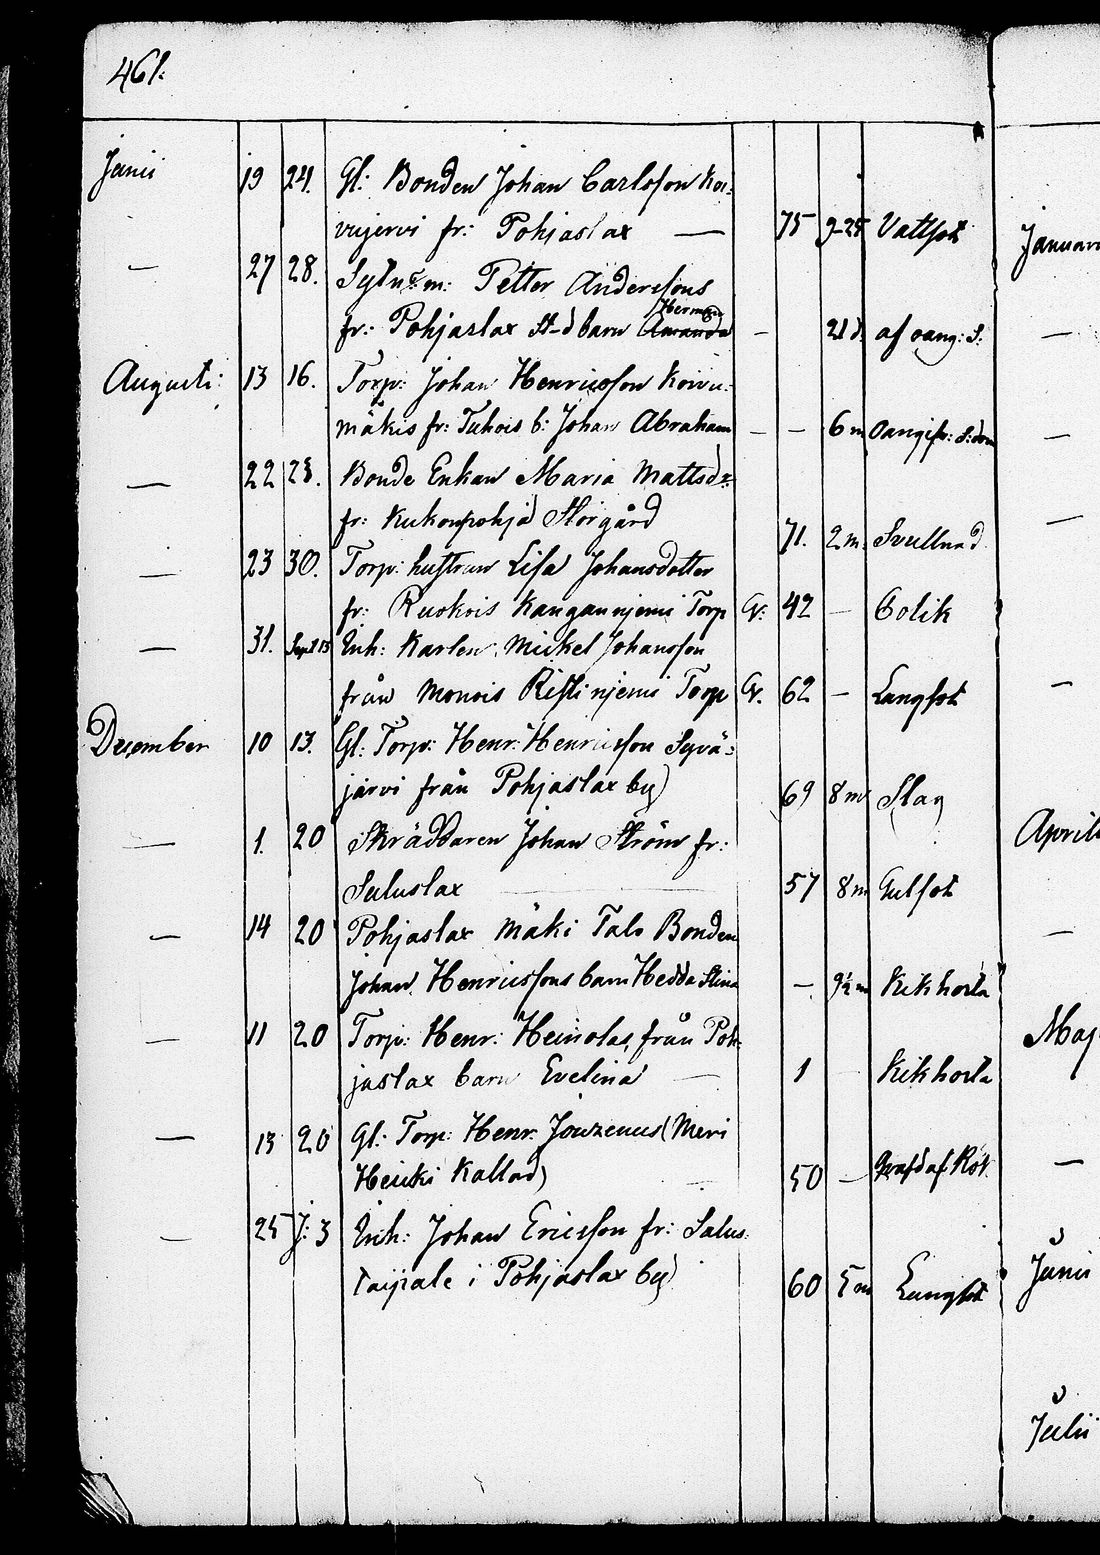 461.
Junii 19 24. Gl: Bonden Johan Carlsson Koi-
vujervi fr: Pohjaslax — 75 9-25 Vattsot
— 27 28. Sytn:m: Petter Anderssons
Herman
fr: Pohjaslax St-d barn Amanda — 21 d. af oang: S:
Augusti: 13 16. Torp: Johan Henricsson Koivu-
mäkis fr: Tuhois b: Johan Abraham — — 6 m Oangifv: S:dom
— 22 23. Bonde Enkan Maria Mattsdr
fr: Kukonpohja Storgård 71. 2 m. Svullnad
— 23 30. Torp: hustrun Lisa Johansdotter
fr: Ruokois Kangannjemi Torp G: 42 — Colik
— 31. Sept 13 Inh: Karlen Mickel Johansson
från Monois Ristinjemi Torp G. 62 — Lungsot
December 10 13. Gl: Torp: Henr: Henricsson Syvä-
järvi från Pohjaslax by) 69 8 m Slag
— 1. 20 Skräddaren Johan Ström fr:
Saluslax 57 8 m Gulsot
— 14 20 Pohjaslax Mäki Talo Bonden
Johan Henricssons barn Hedda Stina — 9½ m Kikhosta
— 11 20 Torp: Henr: Heinolas, från Poh-
jaslax barn Evelina — 1 — Kikhosta
— 13 20 Gl: Torp: Henr. (Meri
Heicki Kallas) 50 — af Röt
— 25 J: 3 Inh: Johan Ericsson fr: Salus-
taipale i Pohjaslax by) 60 5 m Lungsot
Januari
—
—
—
—
April
—
Maj
—
Junii
Julii